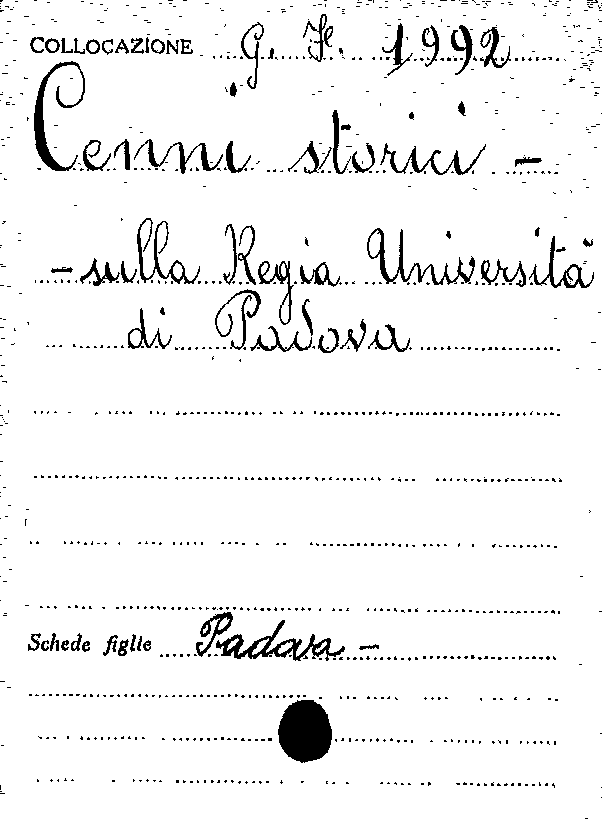 COLLOCAZIONE G. Je. 1992
Cenni storici -
- sulla Regia Università
di Padova
Schede figlie Padova -